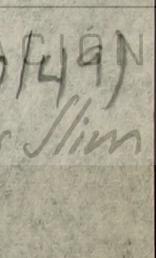 ACIÓN
/49)
Slim